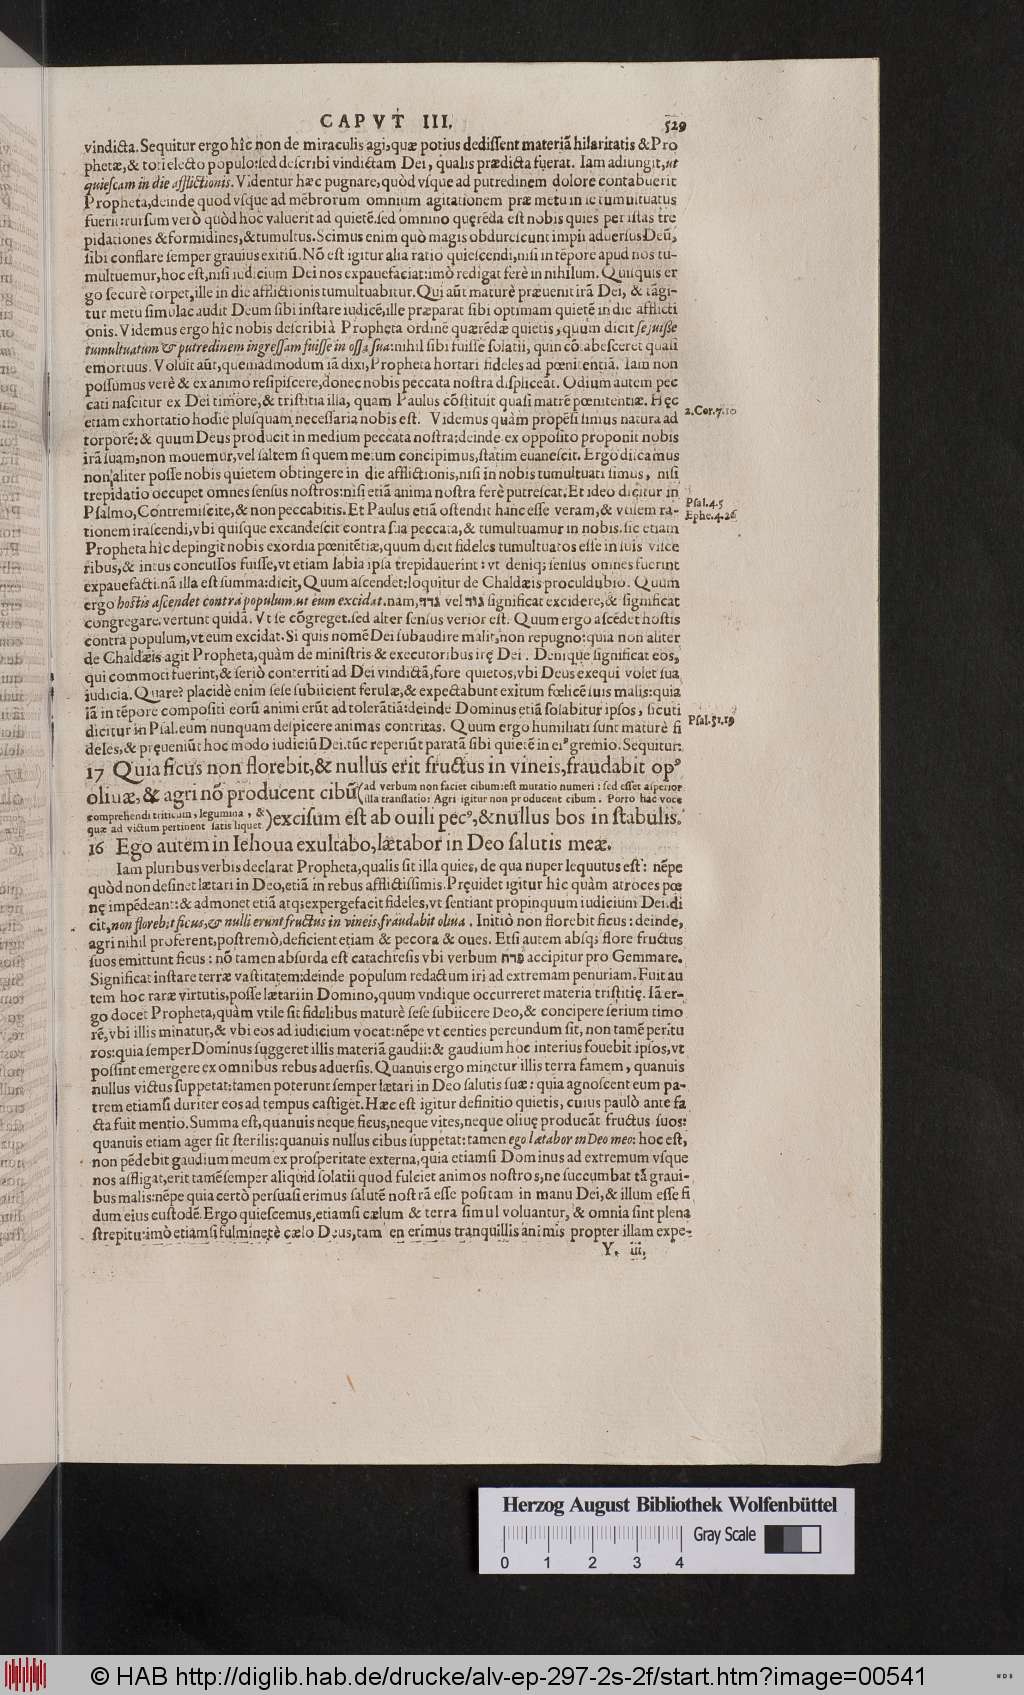 CAPVT III. 529
vindicta. Sequitur ergo hîc non de miraculis agi, quæ potius dedissent materiã hilaritatis & Pro
phetæ, & toti electo populo: sed describi vindictam Dei, qualis prædicta fuerat. Iam adiungit, ut
quiescam in die afflictionis. Videntur hæc pugnare, quòd vsque ad putredinem dolore contabuerit
Propheta, deinde quod vsque ad mẽbrorum omnium agitationem præ metu in se tumultuatus
fuerit: rursum verò quòd hoc valuerit ad quietẽ. sed omnino quęrẽda est nobis quies per istas tre
pidationes & formidines, & tumultus. Scimus enim quò magis obdurescunt impii aduersus Deũ,
sibi conflare semper grauius exitiũ. Nõ est igitur alia ratio quiescendi, nisi in tẽpore apud nos tu-
multuemur, hoc est, nisi iudicium Dei nos expauefaciat: imò redigat ferè in nihilum. Quisquis er
go securè torpet, ille in die afflictionis tumultuabitur. Qui aũt maturè præuenit irã Dei, & tãgi-
tur metu simulac audit Deum sibi instare iudicẽ, ille præparat sibi optimam quietẽ in die afflicti
onis. Videmus ergo hîc nobis describi à Propheta ordinẽ quærẽdæ quietis, quum dicit se fuisse
tumultuatum & putredinem ingressam fuisse in ossa sua: nihil sibi fuisse solatii, quin cõtabesceret quasi
emortuus. Voluit aũt, quemadmodum iã dixi, Propheta hortari fideles ad pœnitentiã. Iam non
possumus verè & ex animo resipiscere, donec nobis peccata nostra displiceãt. Odium autem pec
cati nascitur ex Dei timore, & tristitia illa, quam Paulus cõstituit quasi matrẽ pœnitentiæ. Hęc
2. Cor. 7. 10
etiam exhortatio hodie plusquam necessaria nobis est. Videmus quàm propẽsi simus natura ad
torporẽ: & quum Deus producit in medium peccata nostra: deinde ex opposito proponit nobis
irã suam, non mouemur, vel saltem si quem metum concipimus, statim euanescit. Ergo discamus
non aliter posse nobis quietem obtingere in die afflictionis, nisi in nobis tumultuati simus, nisi
trepidatio occupet omnes sensus nostros: nisi etiã anima nostra ferè putrescat. Et ideo dicitur in
Psal. 4. 5
Psalmo, Contremiscite, & non peccabitis. Et Paulus etiã ostendit hanc esse veram, & vtilem ra-
Ephe. 4. 26
tionem irascendi, vbi quisque excandescit contra sua peccata, & tumultuamur in nobis. sic etiam
Propheta hîc depingit nobis exordia pœnitẽtiæ, quum dicit fideles tumultuatos esse in suis visce
ribus, & intus concussos fuisse, vt etiam labia ipsa trepidauerint: vt deniq; sensus omnes fuerint
expauefacti. nã illa est summa: dicit, Quum ascendet: loquitur de Chaldæis proculdubio. Quum
ergo hostis ascendet contra populum ut eum excidat. nam, גדד vel גוד significat excidere, & significat
congregare. vertunt quidã. Vt se cõgreget. sed alter sensus verior est. Quum ergo ascẽdet hostis
contra populum, vt eum excidat. Si quis nomẽ Dei subaudire malit, non repugno: quia non aliter
de Chaldæis agit Propheta, quàm de ministris & executoribus irę Dei. Denique significat eos,
qui commoti fuerint, & seriò conterriti ad Dei vindictã, fore quietos, vbi Deus exequi volet sua
iudicia. Quare? placidè enim sese subiicient ferulæ, & expectabunt exitum fœlicẽ suis malis: quia
iã in tẽpore compositi eorũ animi erũt ad tolerãtiã: deinde Dominus etiã solabitur ipsos, sicuti
Psal. 51. 19
dicitur in Psal. eum nunquam despicere animas contritas. Quum ergo humiliati sunt maturè fi
deles, & pręueniũt hoc modo iudiciũ Dei. tũc reperiũt paratã sibi quietẽ in ei⁹ gremio. Sequitur:
17 Quia ficus non florebit, & nullus erit fructus in vineis, fraudabit op⁹
oliuæ, & agri nõ producent cibũ (ad verbum non faciet cibum: est mutatio numeri: sed esset asperior
illa translatio: Agri igitur non producent cibum. Porto hac voce
comprehendi triticum, legumina, &
quæ ad victum pertinent satis liquet) excisum est ab ouili pec⁹, & nullus bos in stabulis.
16 Ego autem in Iehoua exultabo, lætabor in Deo salutis meæ.
Iam pluribus verbis declarat Propheta, qualis sit illa quies, de qua nuper lequutus est: nẽpe
quòd non desinet lætari in Deo, etiã in rebus afflictissimis. Pręuidet igitur hîc quàm atroces pœ
nę impẽdeant: & admonet etiã atq; expergefacit fideles, vt sentiant propinquum iudicium Dei. di
cit, non florebit ficus, & nulli erunt fructus in vineis, fraudabit oliua. Initiò non florebit ficus: deinde,
agri nihil proferent, postremò, deficient etiam & pecora & oues. Etsi autem absq; flore fructus
suos emittunt ficus: nõ tamen absurda est catachresis vbi verbum פרח accipitur pro Gemmare.
Significat instare terræ vastitatem: deinde populum redactum iri ad extremam penuriam. Fuit au
tem hoc raræ virtutis, posse lætari in Domino, quum vndique occurreret materia tristitię. Iã er-
go docet Propheta, quàm vtile sit fidelibus maturè sese subiicere Deo, & concipere serium timo
rẽ, vbi illis minatur, & vbi eos ad iudicium vocat: nẽpe vt centies pereundum sit, non tamẽ peritu
ros: quia semper Dominus suggeret illis materiã gaudii: & gaudium hoc interius fouebit ipsos, vt
possint emergere ex omnibus rebus aduersis. Quanuis ergo minetur illis terra famem, quanuis
nullus victus suppetat: tamen poterunt semper lætari in Deo salutis suæ: quia agnoscent eum pa-
trem etiamsi duriter eos ad tempus castiget. Hæc est igitur definitio quietis, cuius paulò ante fa
cta fuit mentio. Summa est, quanuis neque ficus, neque vites, neque oliuę producãt fructus suos:
quanuis etiam ager sit sterilis: quanuis nullus cibus suppetat: tamen ego lætabor in Deo meo: hoc est,
non pẽdebit gaudium meum ex prosperitate externa, quia etiamsi Dominus ad extremum vsque
nos affligat, erit tamẽ semper aliquid solatii quod fulciet animos nostros, ne succumbat tã graui-
bus malis: nẽpe quia certò persuasi erimus salutẽ nostrã esse positam in manu Dei, & illum esse fi
dum eius custodẽ. Ergo quiescemus, etiamsi cælum & terra simul voluantur, & omnia sint plena
strepitu: imò etiamsi fulminet è cælo Deus, tamen erimus tranquillis animis propter illam expe-
Y. iii.
Herzog August Bibliothek Wolfenbüttel
Gray Scale
0 1 2 3 4
© HAB http://diglib.hab.de/drucke/alv-ep-297-2s-2f/start.htm?image=00541